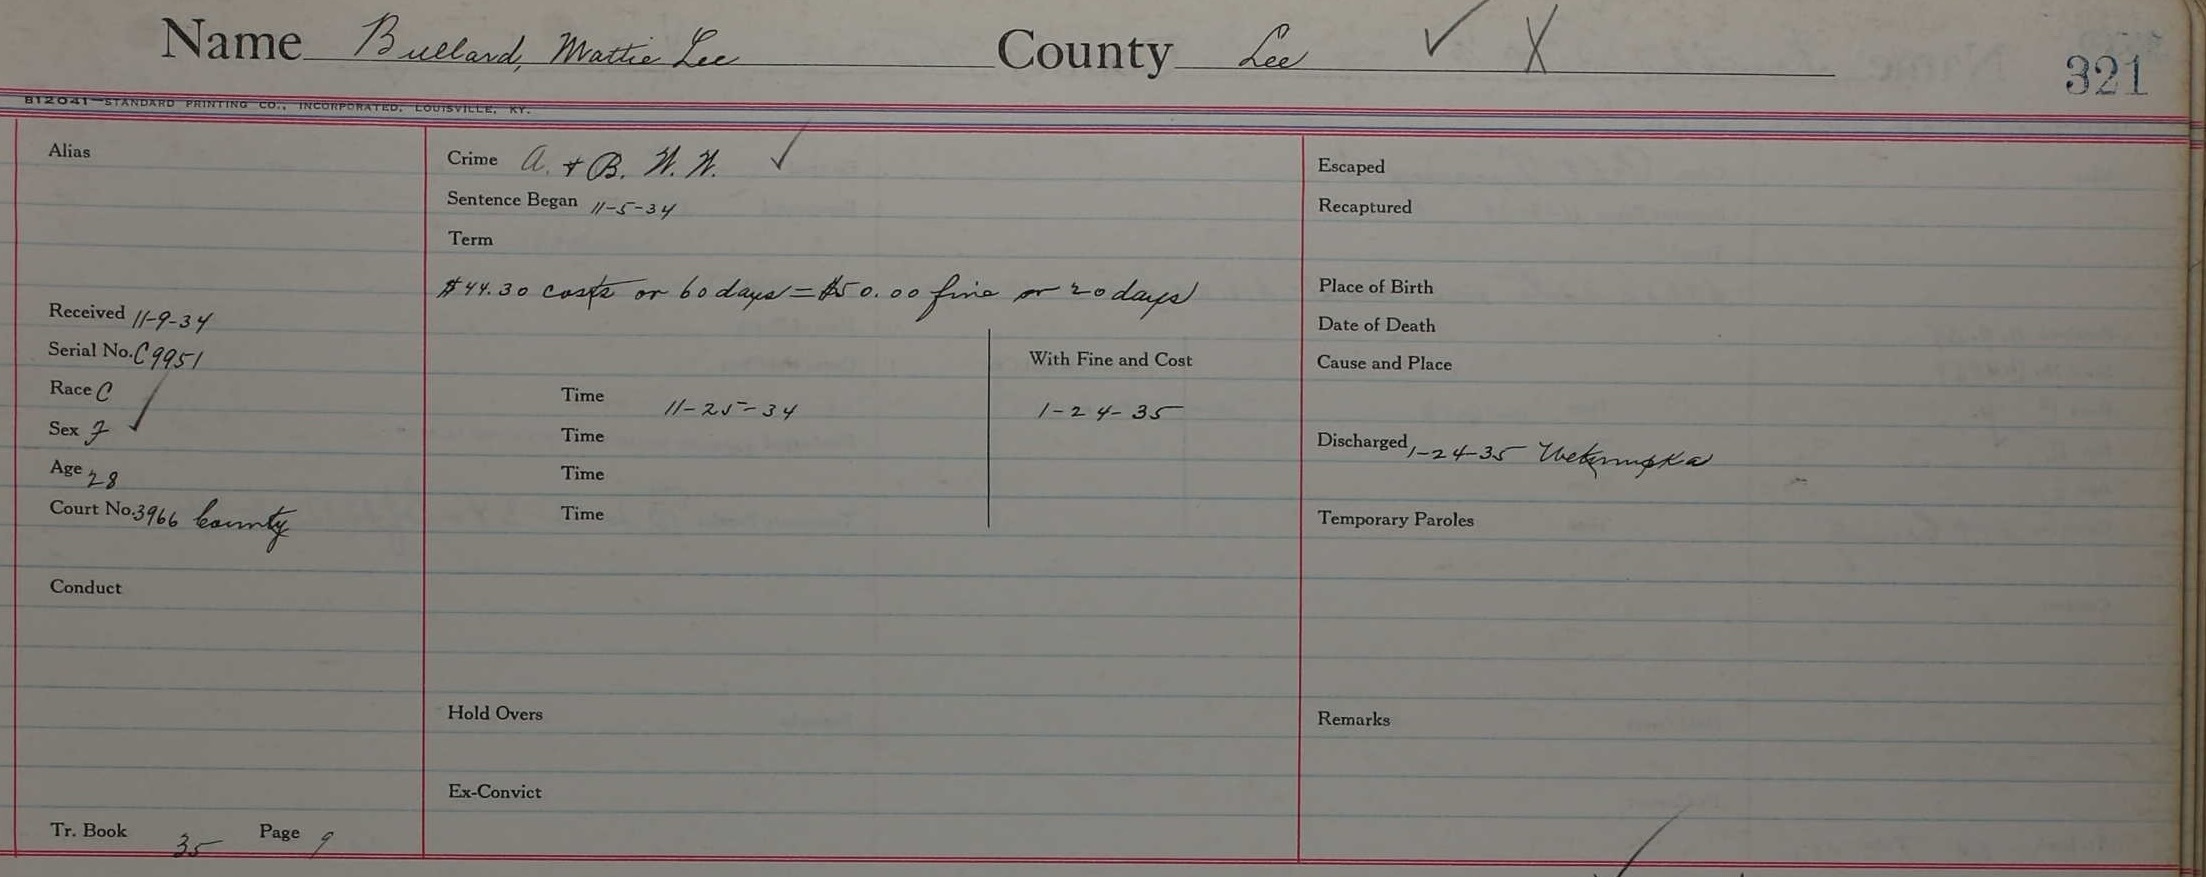 Name Bullard, Mattie Lee County Lee ✓ X 321
812041—STANDARD PRINTING CO., INCORPORATED, LOUISVILLE, KY.
Alias
Received 11-9-34
Serial No. C9951
Race C
Sex F
Age 28
Court No. 3966 County
Conduct
Tr. Book 35 Page 9
Crime A. & B. W. W. ✓
Sentence Began 11-5-34
Term
$44.30 costs or 60 days = $50.00 fine or 20 days
With Fine and Cost
Time 11-25-34 1-24-35
Time
Time
Time
Hold Overs
Ex-Convict
Escaped
Recaptured
Place of Birth
Date of Death
Cause and Place
Discharged 1-24-35 Wetumpka
Temporary Paroles
Remarks